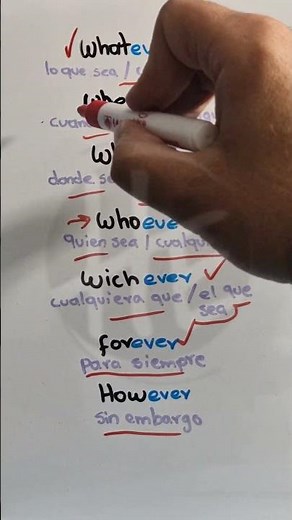 Whatev
lo que sea /
donde
→ Whoeve
quien sea / cualqu
Wichever
cualquiera que / el que
sea
forever
Para siempre
However
sin embargo